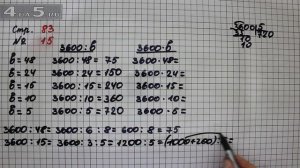 4-na-5.ru
Стр. 83
№ 15
3600:b 3600·b
b=48 3600:48=75 3600·48=
b=24 3600:24=150 3600·24=
b=15 3600:15=240 3600·15=
b=10 3600:10=360 3600·10=
b=5 3600:5=720 3600·5=
3600 5
35 720
10
10
3600:48=3600:6:8=600:8=75
3600:15=3600:3:5=1200:5=(1000+200):5=